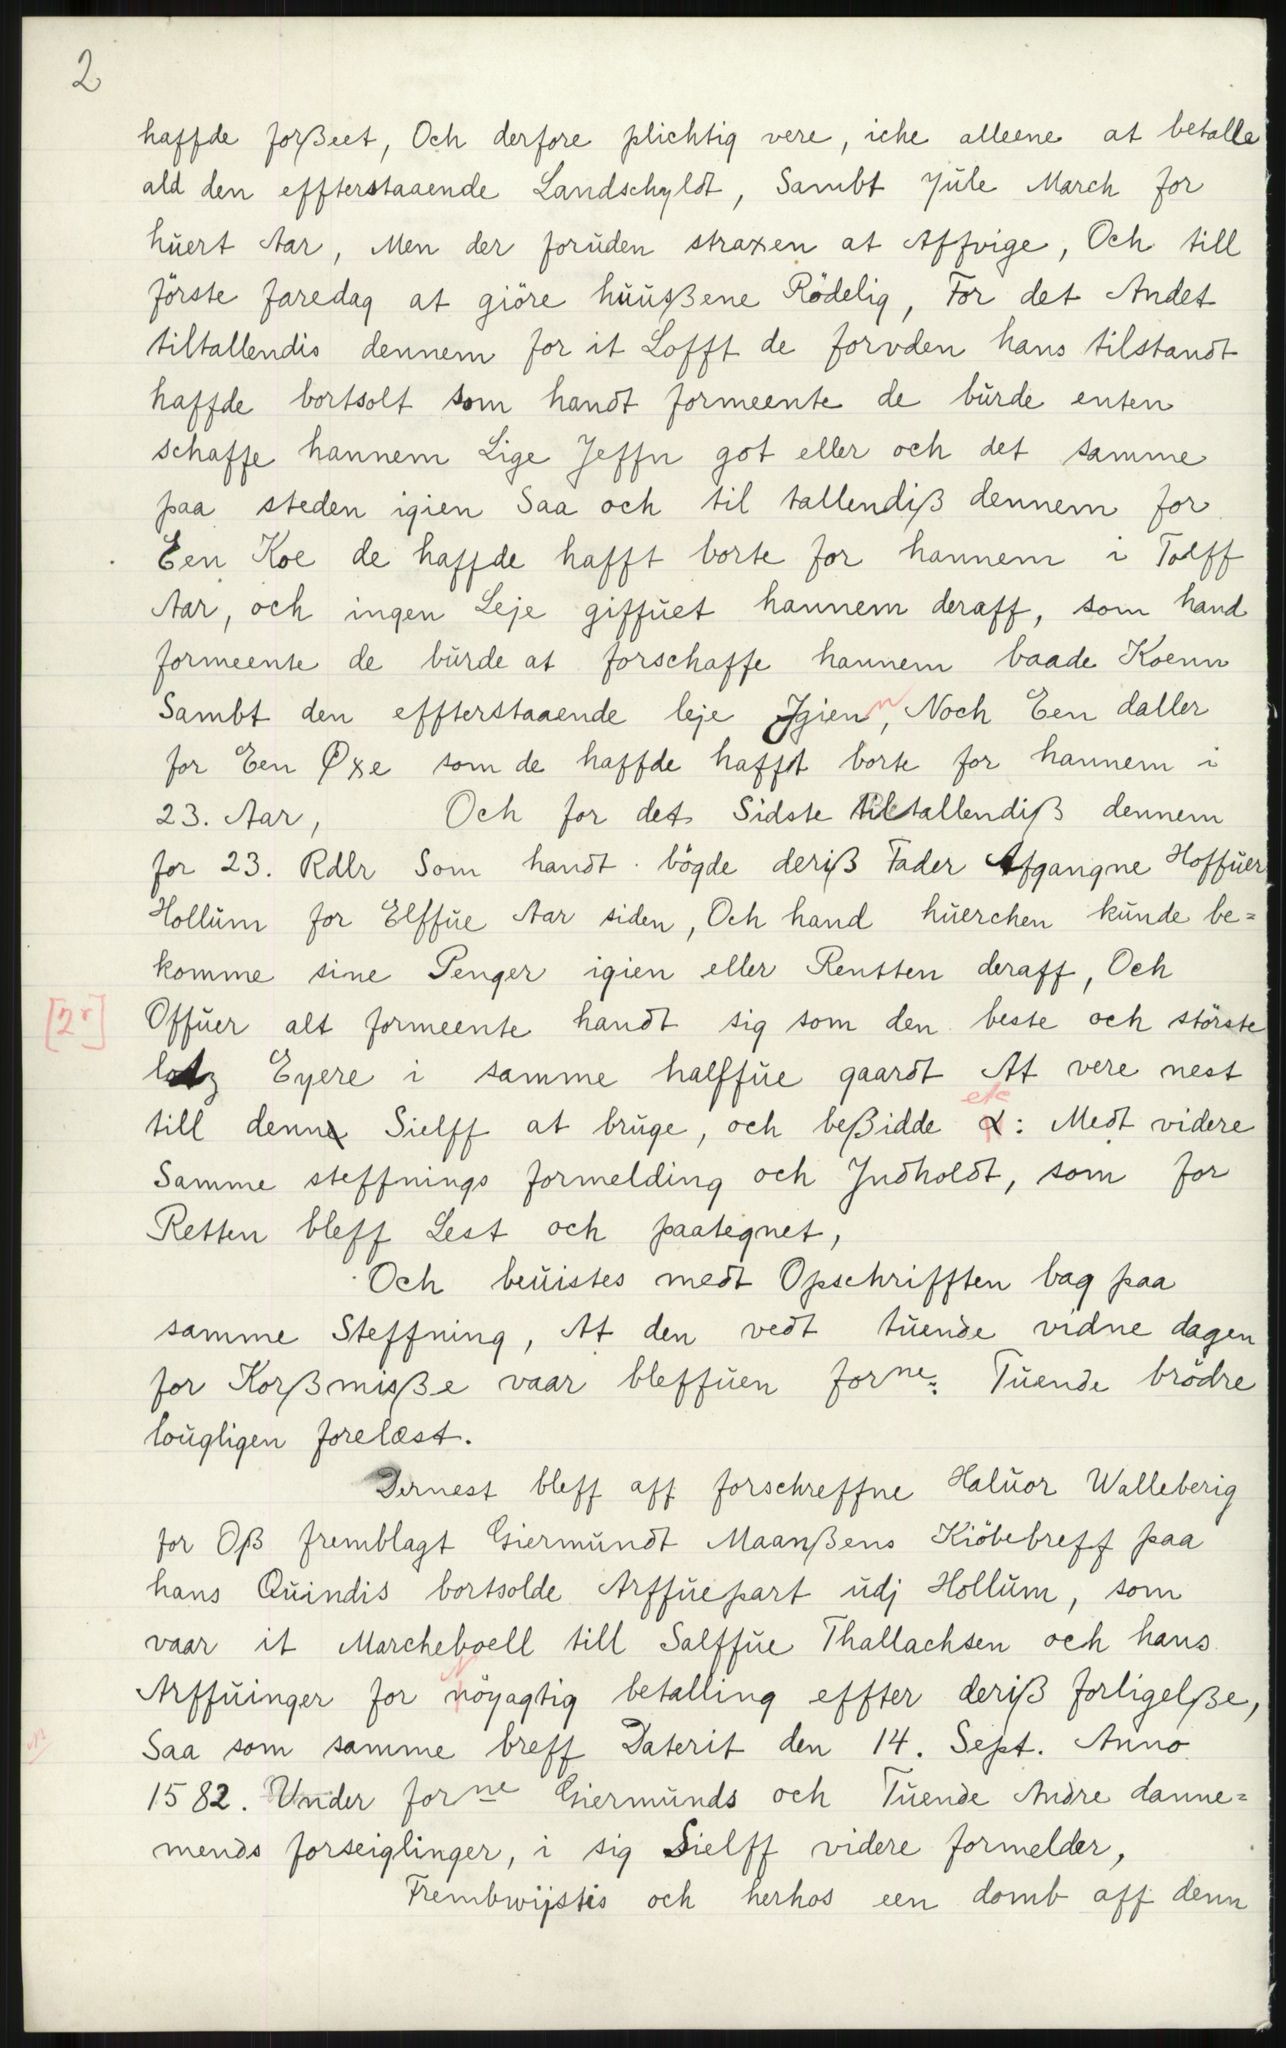 2
haffde forßeet, Och derfore plichtig vere, iche alleene at betalle
ald den effterstaaende Landschyldt, Sambt Jule March for
huert Aar, Men der foruden straxen at Affvige, Och till
förste faredag at giöre huusßene Rödelig, For det Andet
tiltallendis dennem for it Lofft de forvden hans tilstandt
haffde bortsolt som handt formeente de burde enten
schaffe hannem Lige Jeffn got eller och det samme
paa steden igien Saa och til tallendiß dennem for
Een Koe de haffde hafft borte for hannem i Tolff
Aar, och ingen Leje giffuet hannem deraff, som hand
formeente de burde at forschaffe hannem baade Koenn
Sambt den effterstaaende leje Jgienn, Noch Een daller
for Een Oxe som de haffde hafft borte for hannem i
23. Aar, Och for det Sidste tiltallendiß dennem
for 23. Rdlr Som handt bögde deriß Fader Afgangne Hoffuer
Hollum for Elffue Aar siden, Och hand huerchen kunde be=
komme sine Penger igien eller Rentten deraff, Och
[2r] Offuer alt formeente handt sig som den beste och störste
lotz Eyere i samme halffue gaardt At vere nest
till denn Sielff at bruge, och beßidde etc: Medt videre
Samme steffnings formelding och Jndholdt, som for
Retten bleff Lest och paategnet,
Och beuistes medt Opschrifften bag paa
samme Steffning, At den vedt tuende vidne dagen
for Korßmisße vaar bleffuen forne: Tuende brödre
lougligen forelæst.
Dernest bleff aff forschreffne Haluor Walleberig
for Oß fremblagt Giermundt Maanßens Kiöbebreff paa
hans Quindis bortsolde Arffuepart udj Hollum, som
vaar it Marcheboell till Salffue Thallachsen och hans
Arffuinger for Nöyagtig betalling effter deriß forligelße,
Saa som samme breff Daterit den 14. Sept. Anno
1582. Under forne Giermunds och Tuende Andre danne=
mends forseiglinger, i sig Sielff videre formelder,
Frembwijstis och herhos een domb aff denn